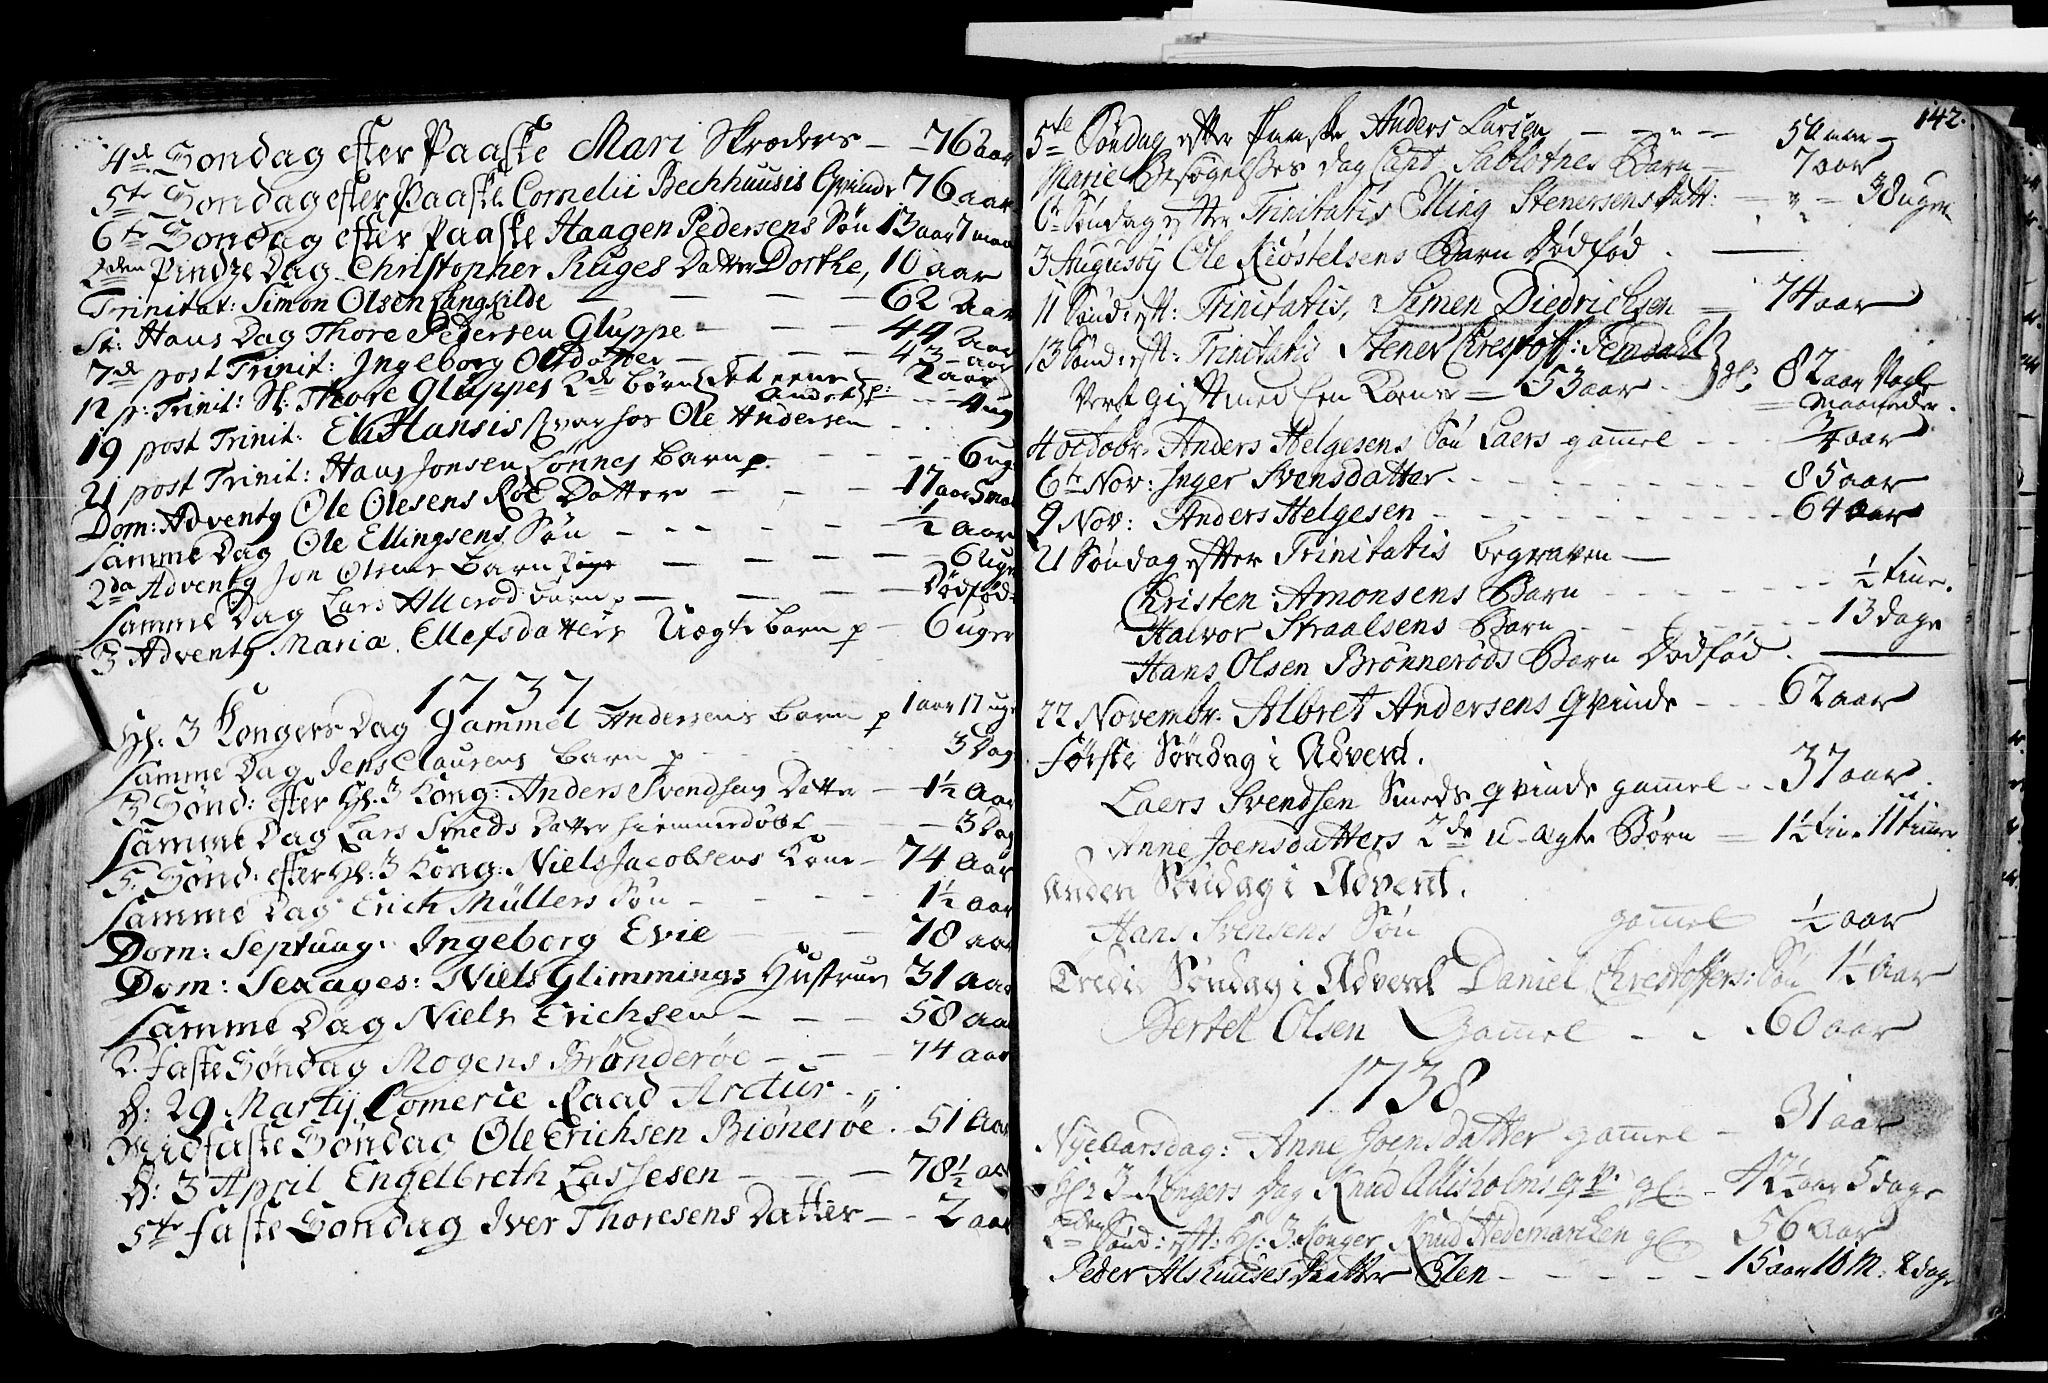 4de Søndag efter Paaske Mari Skræders — 76 aar
5te Søndag efter Paaske Cornelii Bechhuusis Qvinde 76 aar
6te Søndag efter Paaske Haagen Pedersens Søn 13 aar 7 maan
2den Pindze Dag Christopher Ruges Datter Dorthe, 10 aar
Trinitat: Simon Olsen Langkilde — — — — 62 Aar
St: Hans Dag Thore Pedersen Gluppe — — — 44 Aar
7de post Trinit: Ingeborg Olsdatter — — — 43 aar
12 p: Trinit: Sl: Thore Gluppes 2de børn { det eene 2 aar
Andet p: — 4 ug
19 post Trinit: Hansis var hos Ole Andersen
21 post Trinit: Hans Jonsen Lønnes Barn p. — — 6 ug
Dom: Adventy Ole Olesens Røe Datter — — — 17 aar 5 maa
samme Dag Ole Ellingsens Søn — — — — ½ aar
2da Adventy Jon Olsens barn — — — 6 Uger
samme Dag Lars Allerød barn p — — — Dødfød
3 Adventy Maria Ellefsdatters Uægte barn p — 6 uger
1737
Hl. 3 Kongers Dag Gammel Andersens Barn p 1 aar 17 uger
samme Dag Jens Clausens Barn p — — — 3 Dag
3 Sønd: efter Hl. 3 Kong: Anders Svendsens Datter — 1½ Aar
samme Dag Lars Smeds Datter hiemmedøbt — — 3 Dag
5. Sønd: efter Hl: 3 Kong: Niels Jacobsens Kone — 74 Aar
samme Dag Erich Müllers Søn — — — 1½ aar
Dom: Septuag: Ingeborg Evie — — 78 aar
Dom: Sexages: Niels Glimmings Hustrue 31 Aar
samme Dag Niels Erichsen — — — 58 aar
2. faste Søndag Mogens Brønderøe — — — 74 aar
d: 29 Martij Comerce Raad Arctur
Midfaste Søndag Ole Erichsen Biønerøe. 51 Aar
d: 3 April Engelbreth Lassesen — — — 78½ aar
5te faste Søndag Iver Thoresens Datter — — 2 aar
142.
5te Søndag efter Paaske Anders Larsen — — — — 50
Marie Besøgelses Dag Capt Sablotnes Barn — 7 aar
6te Søndag efter Trinitatis Elling Stenersens Datt: — — 3 Ugen
3 Augusty Ole Kiøstelsens Barn Dødfød. —
11 Sønd: eft: Trinitatis, Simen Diedrichsen — 74 aar
13 Sønd: eft: Trinitatis Stener Chrestoff: Temdahl
Vert gift med sen Kone — 53 aar. } gl: 82 aar
Maaneder.
4 octobr. Anders Helgesens Søn Laers gammel — — ¾ aar
6te Nov: Inger Svensdatter — — — — 85 aar
9 Nov: Anders Helgesen — — — — 64 aar
21 Søndag efter Trinitatis begraven —
Christen Amonsens Barn — — — — ½ time.
Halvor Straalsens Barn — — — — 13 dage
Hans Olsen Brønnerøds Barn Dødfød. —
22 Novembr. Albret Andersens Qvinde — — 62 aar
første Søndag i Advent.
Laers Svendsen Smeds qvinde gammel — 37 aar.
Anne Joensdatters 2de u-ægte Børn — 1½ time 11 timer
anden Søndag i Advent.
Hans Svensens Søn gammel ½ aar
Tredie Søndag i Advent Daniel Chrestoffers: Søn 1½ Aar
Bertel Olsen Gammel — — 60 aar
1738
Nyeaarsdag: Anne Joensdatter gammel — 31 aar
Hl: 3 Kongers Dag Knud Adisholms qv: gl. — 42½ aar 5 dage
2den Sønd: eft: Hl: 3 Konger Knud Hedemarcken gl. 56 aar
Peder Alshuuses Daatter Elen — — — 15 aar 10 M: 2 dage